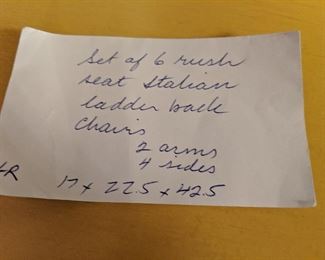 Set of 6 rush
seat Italian
ladder back
Chairs
2 arms
4 sides
17 x 22.5 x 42.5